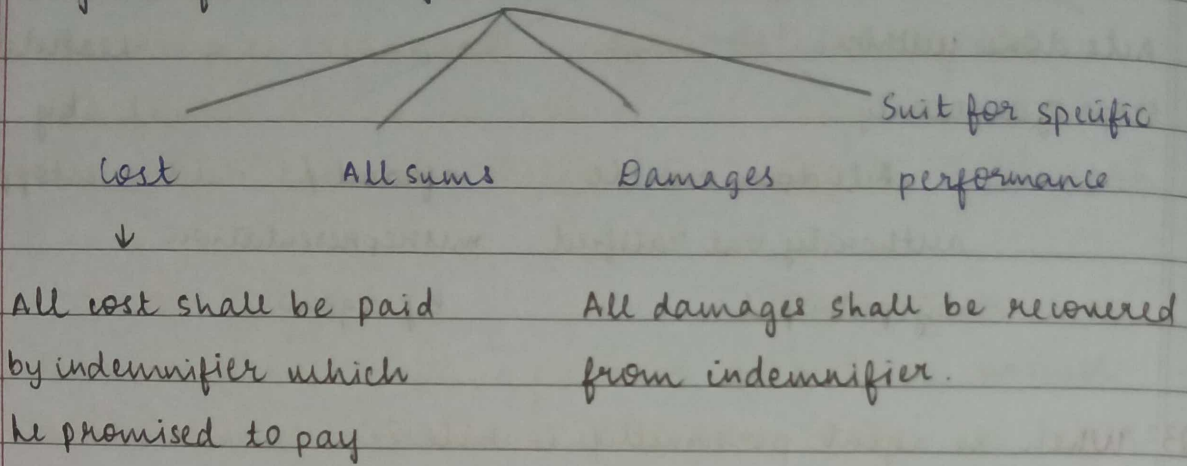 Suit for specific
Cost All sums Damages performance
↓
All cost shall be paid
by indemnifier which
he promised to pay
All damages shall be recovered
from indemnifier.